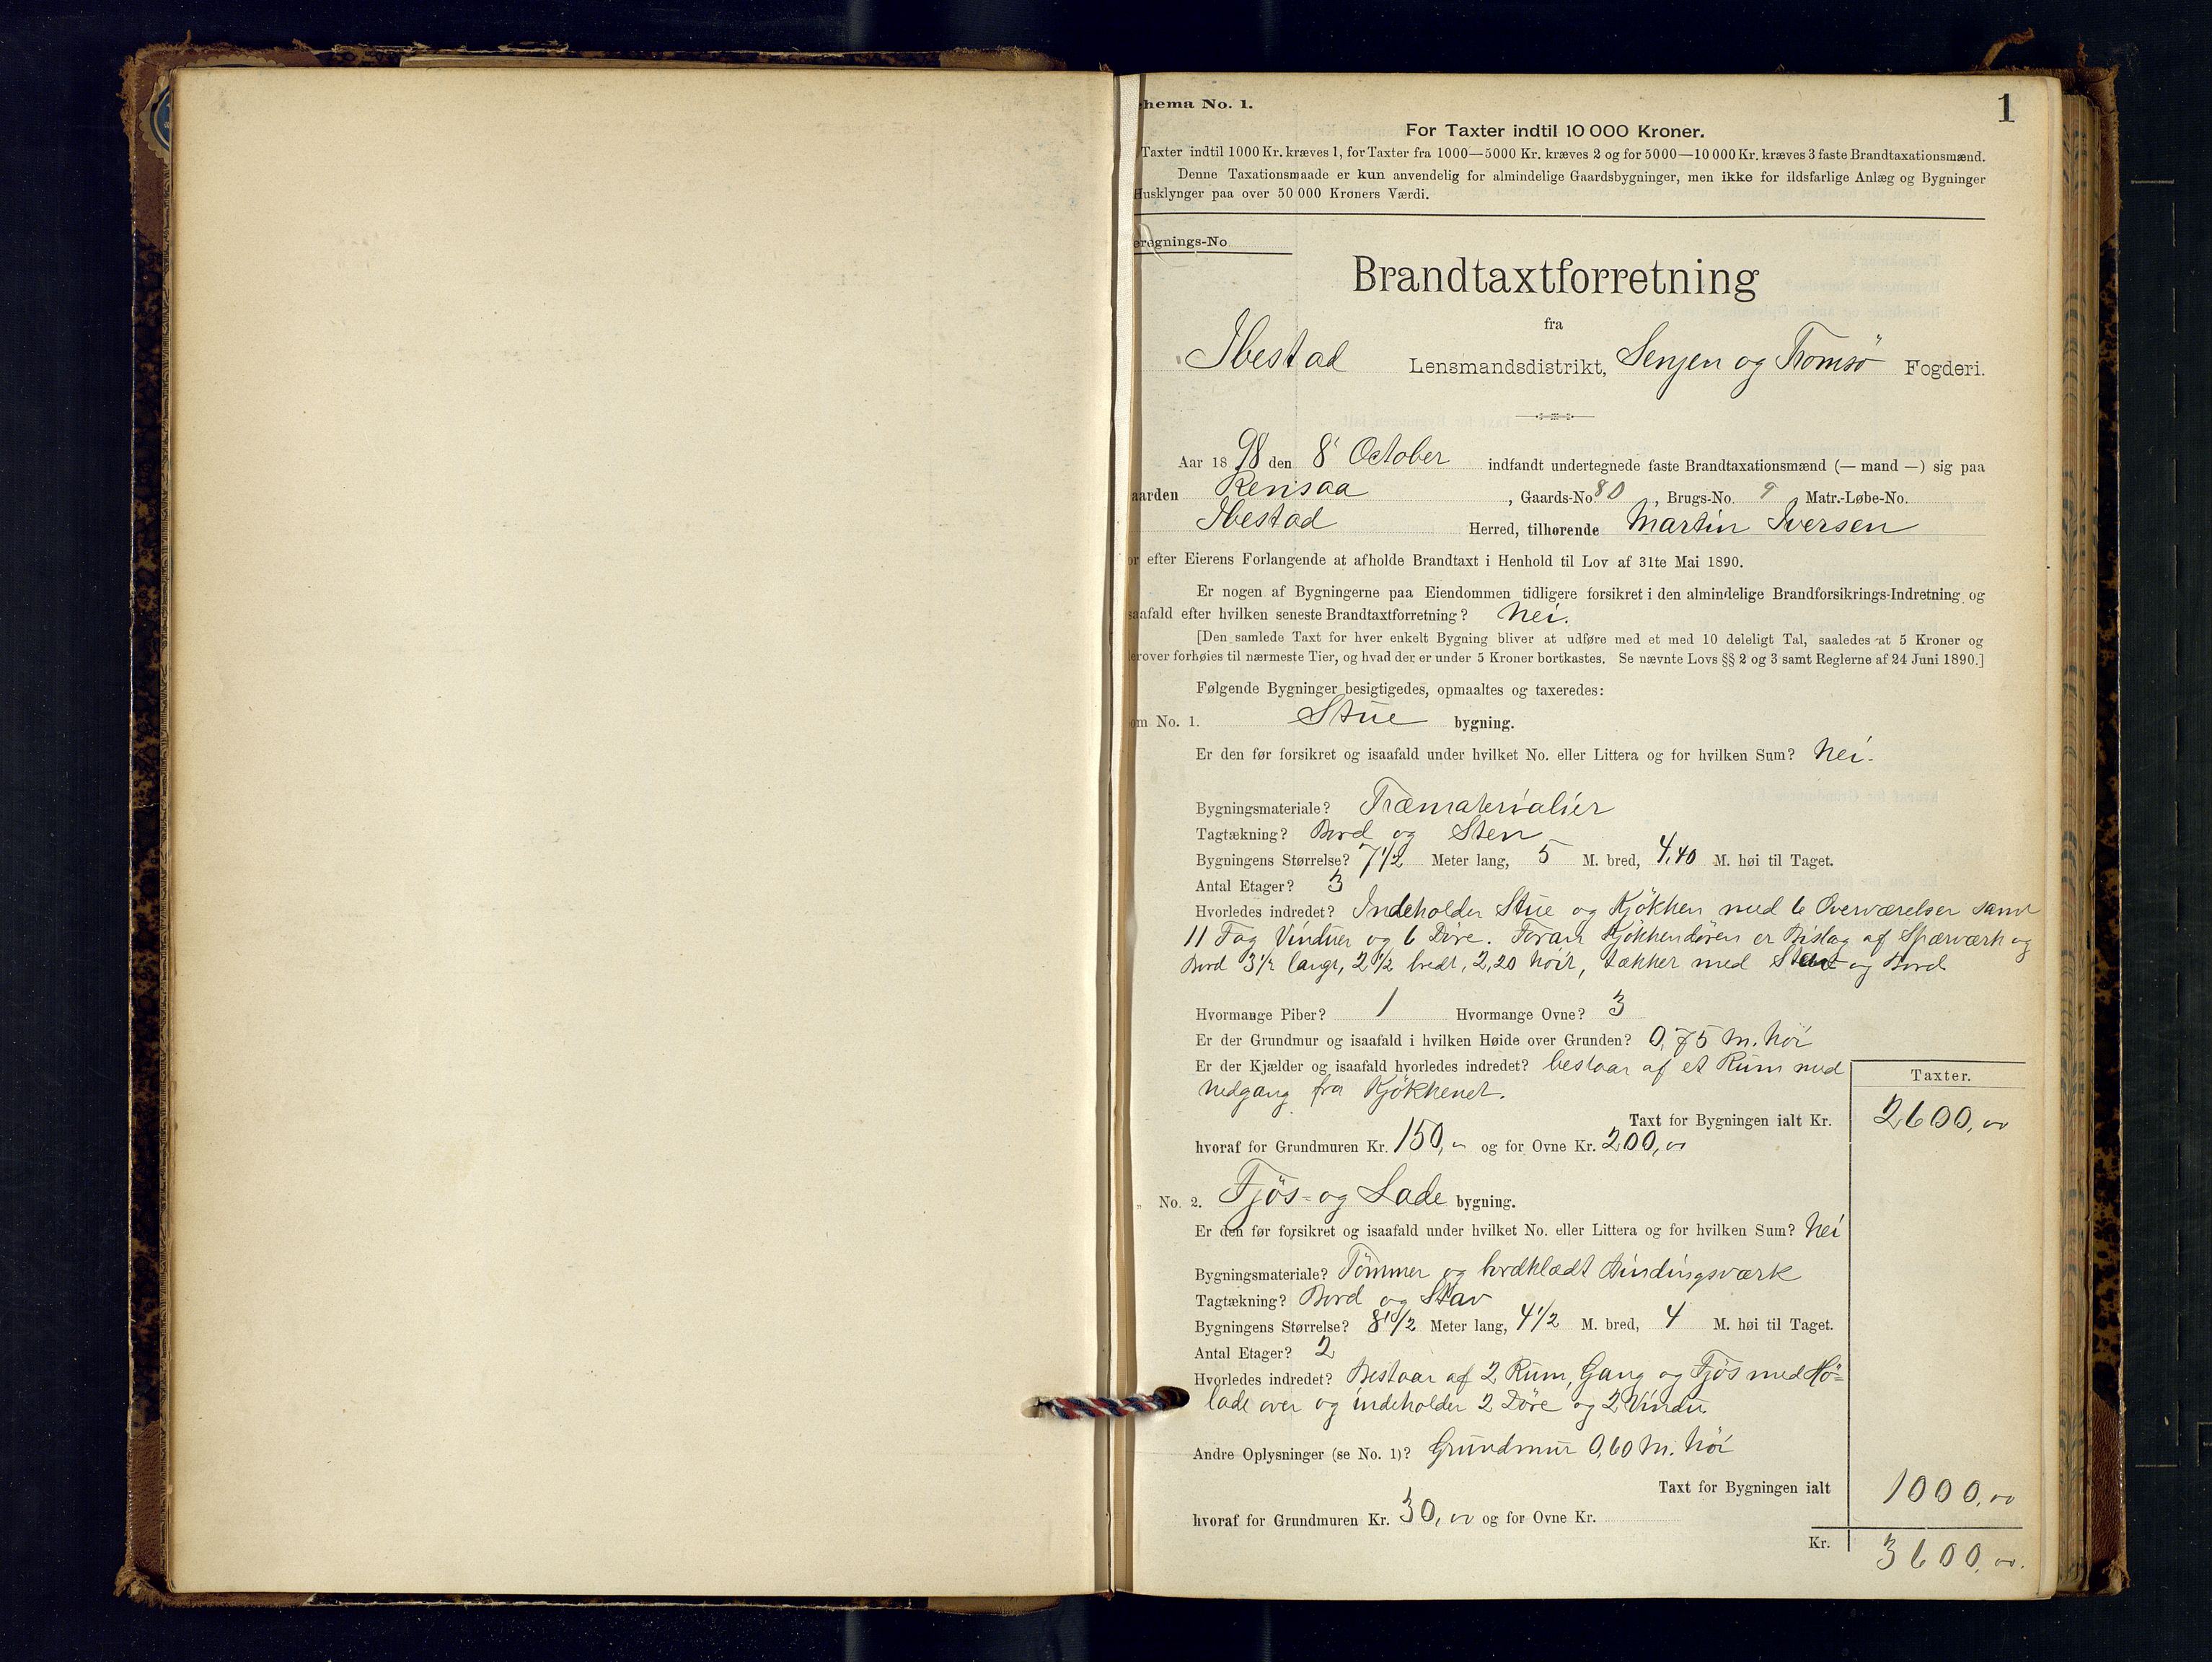 hema No. 1.
1
For Taxter indtil 10 000 Kroner.
Taxter indtil 1000 Kr. kræves 1, for Taxter fra 1000—5000 Kr. kræves 2 og for 5000—10 000 Kr. kræves 3 faste Brandtaxationsmænd.
Denne Taxationsmaade er kun anvendelig for almindelige Gaardsbygninger, men ikke for ildsfarlige Anlæg og Bygninger
Husklynger paa over 50 000 Kroners Værdi.
eregnings-No
Brandtaxtforretning
fra
Ibestad Lensmandsdistrikt, Senjen og Tromsö Fogderi.
Aar 1898 den 8 October indfandt undertegnede faste Brandtaxationsmænd (— mand —) sig paa
aarden Rensaa, Gaards-No 80, Brugs-No. 9 Matr.-Løbe-No.
Ibestad Herred, tilhørende Martin Iversen
or efter Eierens Forlangende at afholde Brandtaxt i Henhold til Lov af 31te Mai 1890.
Er nogen af Bygningerne paa Eiendommen tidligere forsikret i den almindelige Brandforsikrings-Indretning og
saafald efter hvilken seneste Brandtaxtforretning? Nei.
[Den samlede Taxt for hver enkelt Bygning bliver at udføre med et med 10 deleligt Tal, saaledes at 5 Kroner og
derover forhøies til nærmeste Tier, og hvad der er under 5 Kroner bortkastes. Se nævnte Lovs §§ 2 og 3 samt Reglerne af 24 Juni 1890.]
Følgende Bygninger besigtigedes, opmaaltes og taxeredes:
om No. 1. Stue bygning.
Er den før forsikret og isaafald under hvilket No. eller Littera og for hvilken Sum? Nei.
Bygningsmateriale? Træmaterialier
Tagtækning? Bord og Sten
Bygningens Størrelse? 7 1/2 Meter lang, 5 M. bred, 4,40 M. høi til Taget.
Antal Etager? 3
Hvorledes indredet? Indeholder Stue og Kjökken med 6 Overværelser samt
11 Fag Vinduer og 6 Döre. Foran Kjökkendören er Bislag af Spærværk og
Bord 3 1/2 langt, 2 1/2 bredt, 2,20 höit, tækket med og Bord
Hvormange Piber? 1 Hvormange Ovne? 3
Er der Grundmur og isaafald i hvilken Høide over Grunden? 0,75 m. höi
Er der Kjælder og isaafald hvorledes indredet? bestaar af et Rum med
Nedgang fra Kjökkenet.
Taxter.
Taxt for Bygningen ialt Kr. 2600,00
hvoraf for Grundmuren Kr. 150,00 og for Ovne Kr. 200,00
„ No. 2. Fjös- og Lade bygning.
Er den før forsikret og isaafald under hvilket No. eller Littera og for hvilken Sum? Nei
Bygningsmateriale? Tömmer og bordklædt Bindingsværk
Tagtækning? Bord og
Bygningens Størrelse? 8 1/2 Meter lang, 4 1/2 M. bred, 4 M. høi til Taget.
Antal Etager? 2
Hvorledes indredet? Bestaar af 2 Rum, Gang og Fjös med Hö-
lade over og indeholder 2 Döre og 2 Vindu
Andre Oplysninger (se No. 1)? Grundmur 0,60 m. höi
Taxt for Bygningen ialt 1000,00
hvoraf for Grundmuren Kr. 30,00 og for Ovne Kr.
Kr. 3600,00.